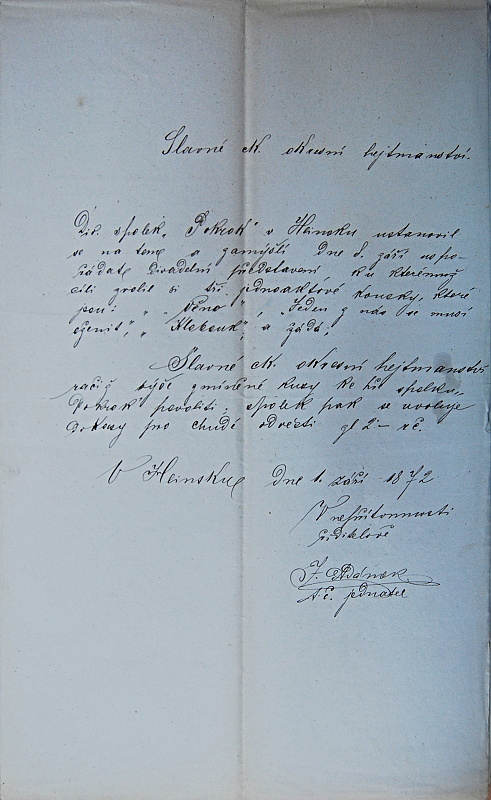 Slavné ck. okresní hejtmanství.
Div. spolek „Pokrok" v Heinsku ustanovil
se na tom a zamýšlí dne 8. září uspo-
řádati divadelní představení, ku kterémuž
cíli zvolil si tři jednoaktové kousky, které
jsou: „Věno", „Jeden z nás se musí
oženit", „Klobouk", a žádá,
Slavné ck. okresní hejtmanství
račiž výše zmíněné kusy ke hře spolku
Pokrok povoliti; spolek pak se uvoluje
dokazy pro chudé odvésti zl 2 – rč.
V Heinsku dne 1. září 1872
V nepřítomnosti
ředitele
J. Adámek
t. č. jednatel